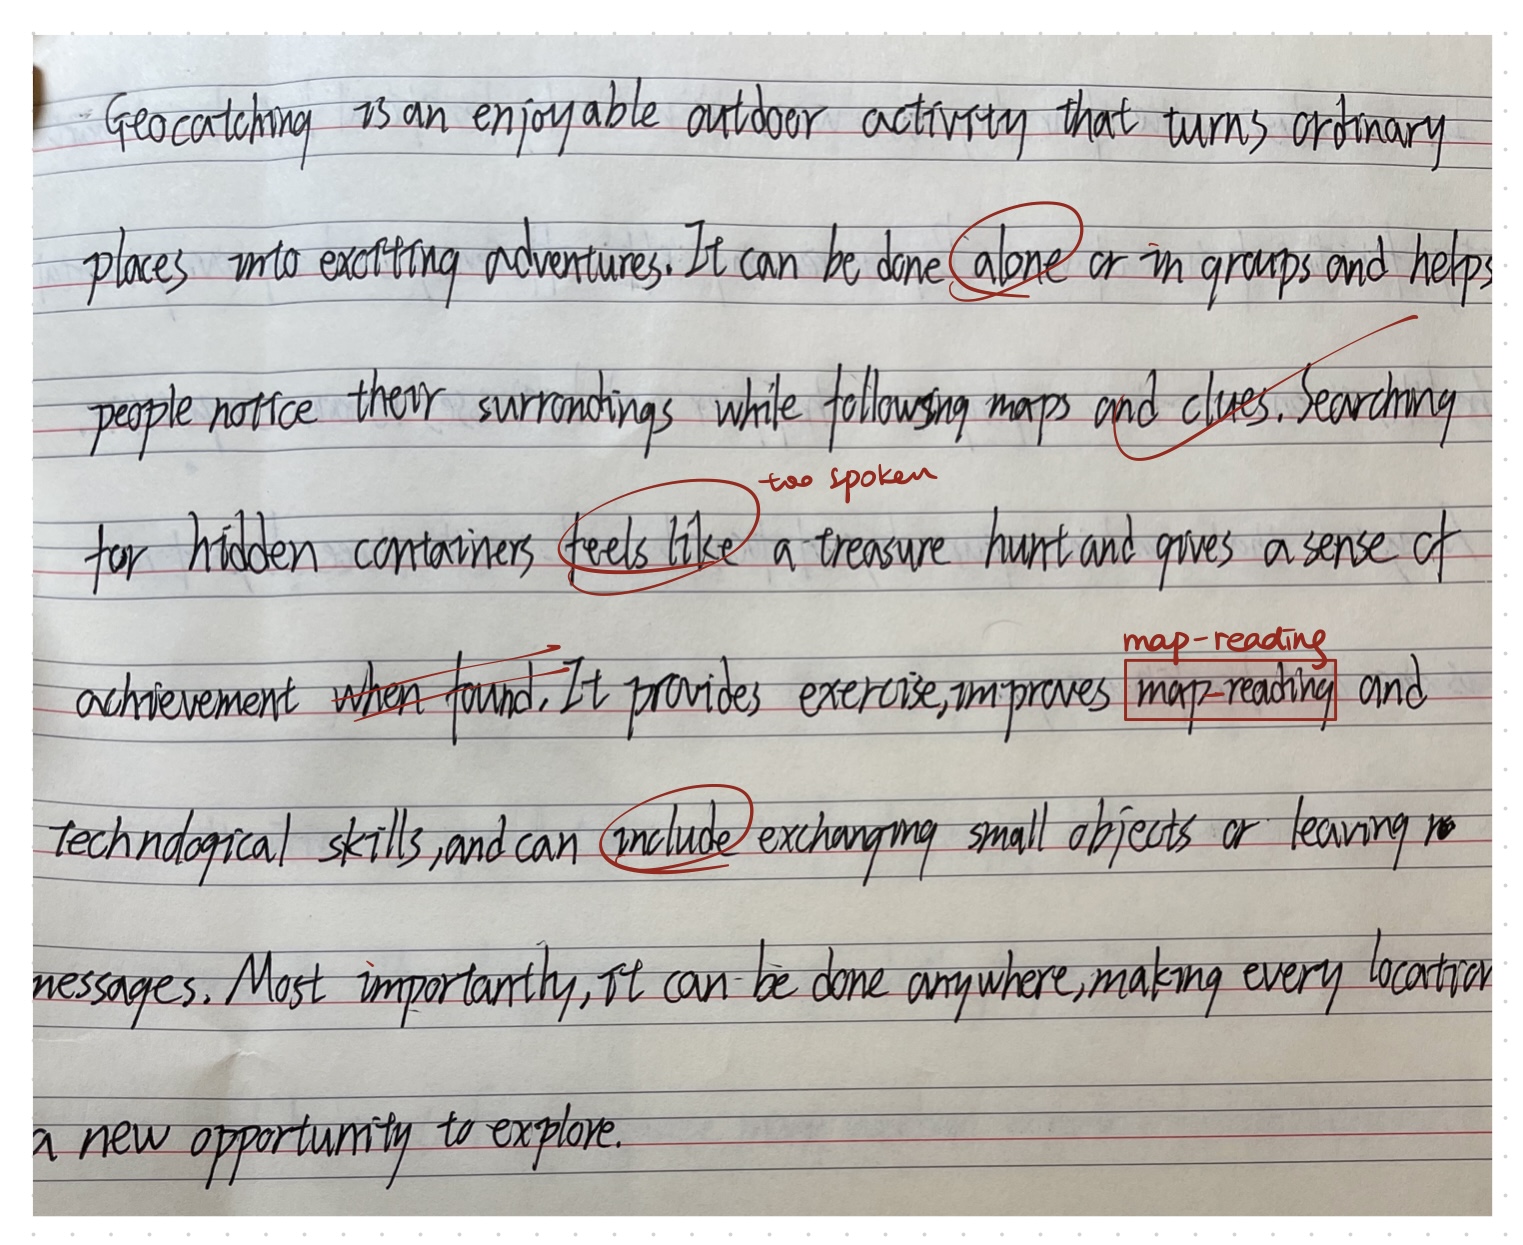 Geocatching is an enjoyable outdoor activity that turns ordinary
places into exciting adventures. It can be done alone or in groups and helps
people notice their surrondings while following maps and clues. Searching
too spoken
for hidden containers feels like a treasure hunt and gives a sense of
map-reading
achievement when found. It provides exercise, improves map-reading and
technological skills, and can include exchanging small objects or leaving
messages. Most importantly, it can be done anywhere, making every location
a new opportunity to explore.